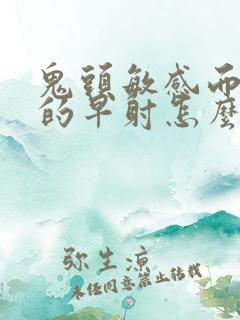 鬼頭敏感而
的早射怎麼
弥生凉
未经同意禁止转载